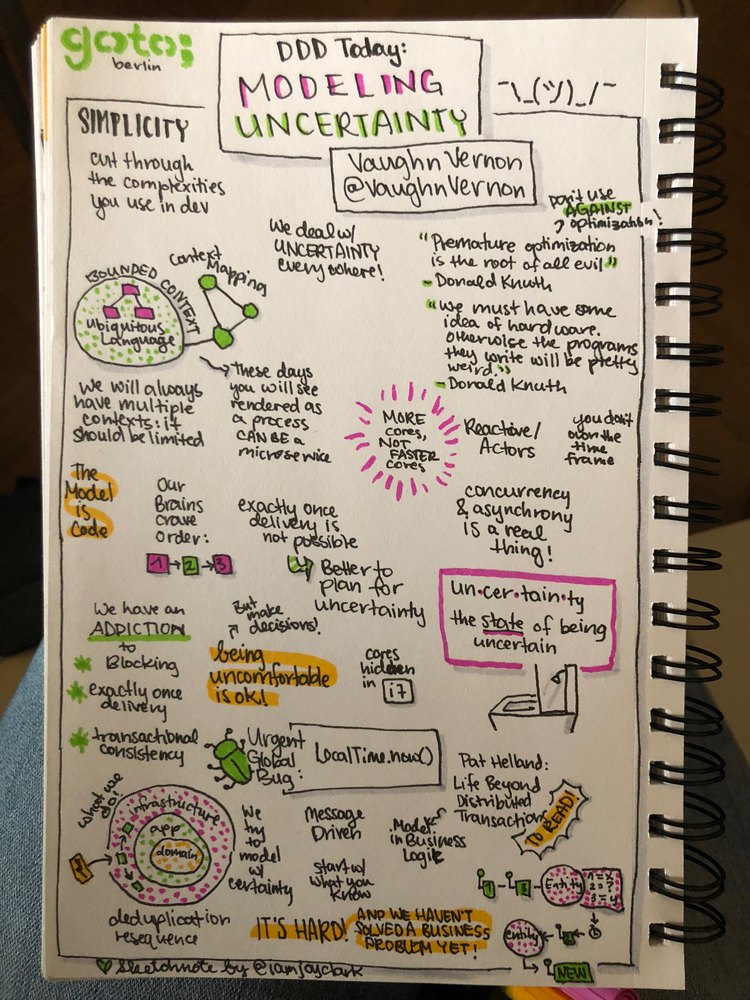 goto;
berlin
DDD Today:
MODELING
UNCERTAINTY
¯\_(ツ)_/¯
Vaughn Vernon
@VaughnVernon
SIMPLICITY
cut through
the complexities
you use in dev
We deal w/
UNCERTAINTY
everywhere!
don't use
AGAINST
optimization!
"Premature optimization
is the root of all evil"
- Donald Knuth
"We must have some
idea of hardware.
Otherwise the programs
they write will be pretty
weird."
- Donald Knuth
BOUNDED CONTEXT
Ubiquitous
Language
Context
Mapping
We will always
have multiple
contexts: it
should be limited
→ These days
you will see
rendered as
a process
CAN BE a
microservice
MORE
cores,
NOT
FASTER
cores
Reactive/
Actors
you don't
own the
time
frame
The
Model
is
Code
Our
Brains
crave
order:
1 → 2 → 3
exactly once
delivery is
not possible
Better to
plan for
uncertainty
concurrency
& asynchrony
IS A real
thing!
un·cer·tain·ty
the state of being
uncertain
We have an
ADDICTION
to
* Blocking
* exactly once
delivery
* transactional
consistency
But
make
decisions!
being
uncomfortable
is ok!
cores
hidden
in i7
Urgent
Global
Bug:
LocalTime.now()
Pat Helland:
Life Beyond
Distributed
Transactions
TO READ!
what we
do!
infrastructure
app
domain
deduplication
resequence
We
try
to
model
w/
certainty
Message
Driven
start w/
what you
know
Model
in Business
Logic
Entity
1 = x
2 = ?
3 = y
entity
NEW
IT'S HARD!
AND WE HAVEN'T
SOLVED A BUSINESS
PROBLEM YET!
Sketchnote by @iamjayclark